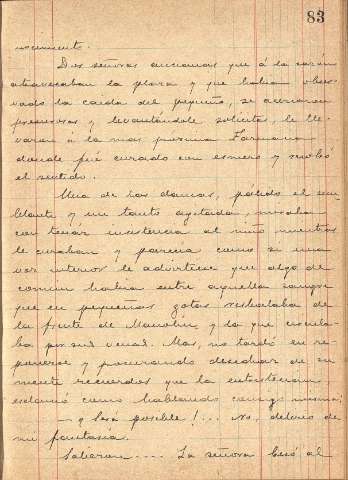 83
nocimiento.
Dos señoras ancianas que á la sazón
atravesaban la plaza y que habían obser-
vado la caida del pequeño, se acercaron
presurosas y levantándole solícitas, le lle-
varon á la mas proxima Farmacia
donde fué curado con esmero y recobró
el sentido.
Una de las damas, pálido el sem-
blante y un tanto agitada, miraba
con tenáz insistencia al niño mientras
le curaban y parecía como si una
voz interior le advirtiese que algo de
común habia entre aquella sangre
que en pequeñas gotas resbalaba de
la frente de Manolín, y la que circula-
ba por sus venas. Mas, no tardó en re-
ponerse y procurando desechar de su
mente recuerdos que la entristecían
exclamó como hablando consigo misma:
— ¿Será posible!... No, delirio de
mi fantasía....
Salieron.... La señora besó al